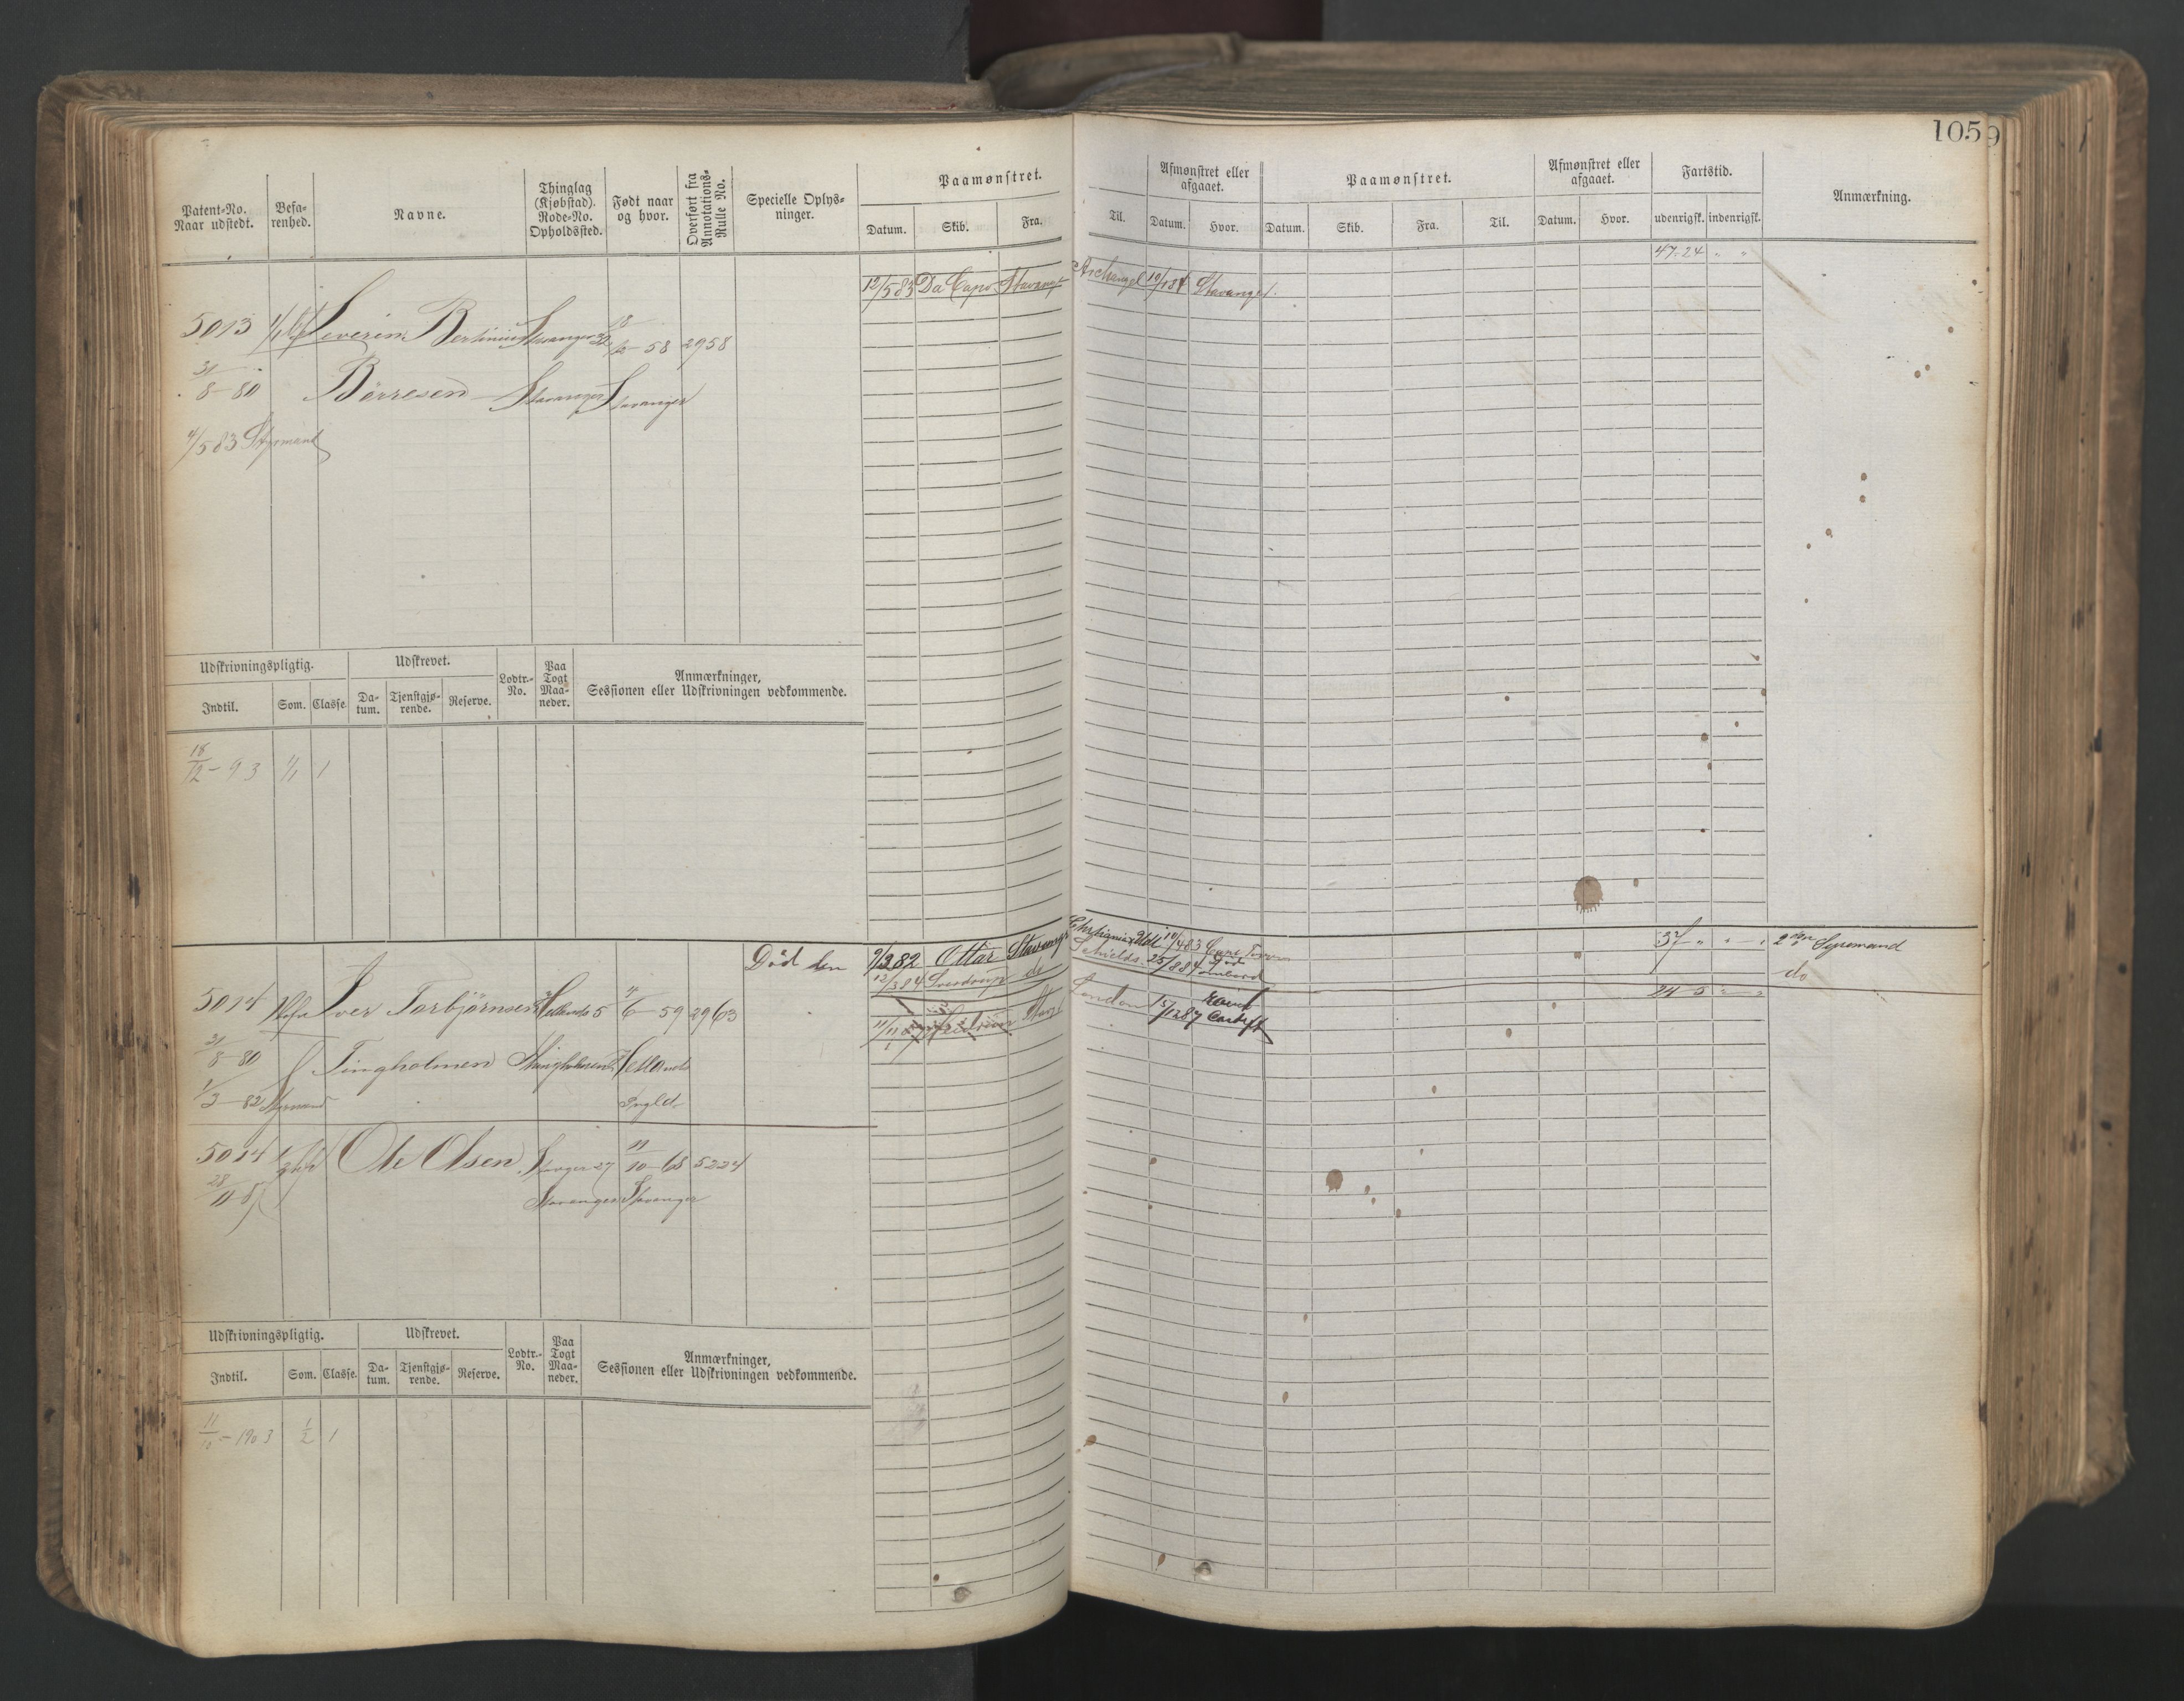 1059
Patent-No. Naar udstedt.
Befa-renhed.
Navne.
Thinglag (Kjøbstad). Rode-No. Opholdssted.
Født naar og hvor.
Overført fra Annotations-Rulle No.
Specielle Oplys-ninger.
Paamønstret.
Datum. Skib. Fra. Til.
Afmønstret eller afgaaet.
Datum. Hvor.
Paamønstret.
Datum. Skib. Fra. Til.
Afmønstret eller afgaaet.
Datum. Hvor.
Fartstid.
udenrigsk. indenrigsk.
Anmærkning.
47-24 " "
12/5 83 Da Capo Stavanger Archangel 10/1 84 Stavanger.
5013 1/1 Severin Bertinius Stavanger 18/12-58 2958
31/8-80 Børresen Stavanger Stavanger
4/5 83 Styrmand
Udskrivningspligtig.
Udskrevet.
Lodtr.-No.
Paa Togt Maa-neder.
Anmærkninger, Sessionen eller Udskrivningen vedkommende.
Indtil. Som. Classe. Da-tum. Tjenstgjø-rende. Reserve.
18/12-93 1/1 1
Død den 9/3 82 Ottar Stavanger 10/4 83 37 " " 2den Styrmand
12/3 84 Sverdrup do Schields 25/8 84 Død ombord do
5014 Iver Torbjørnsen Hetlands 5 4/6-59 2963
11/11 87 London 15/12 87 Cardiff 24 5 " "
31/8-80 Tingholmen Hetlands
1/3-82 Styrmand Tngld.
5014 Ole Olsen Stavger 27 11/10-68 5224
28/11 87 Stavanger Stavanger
Udskrivningspligtig.
Udskrevet.
Lodtr.-No.
Paa Togt Maa-neder.
Anmærkninger, Sessionen eller Udskrivningen vedkommende.
Indtil. Som. Classe. Da-tum. Tjenstgjø-rende. Reserve.
11/10-1903 1/2 1